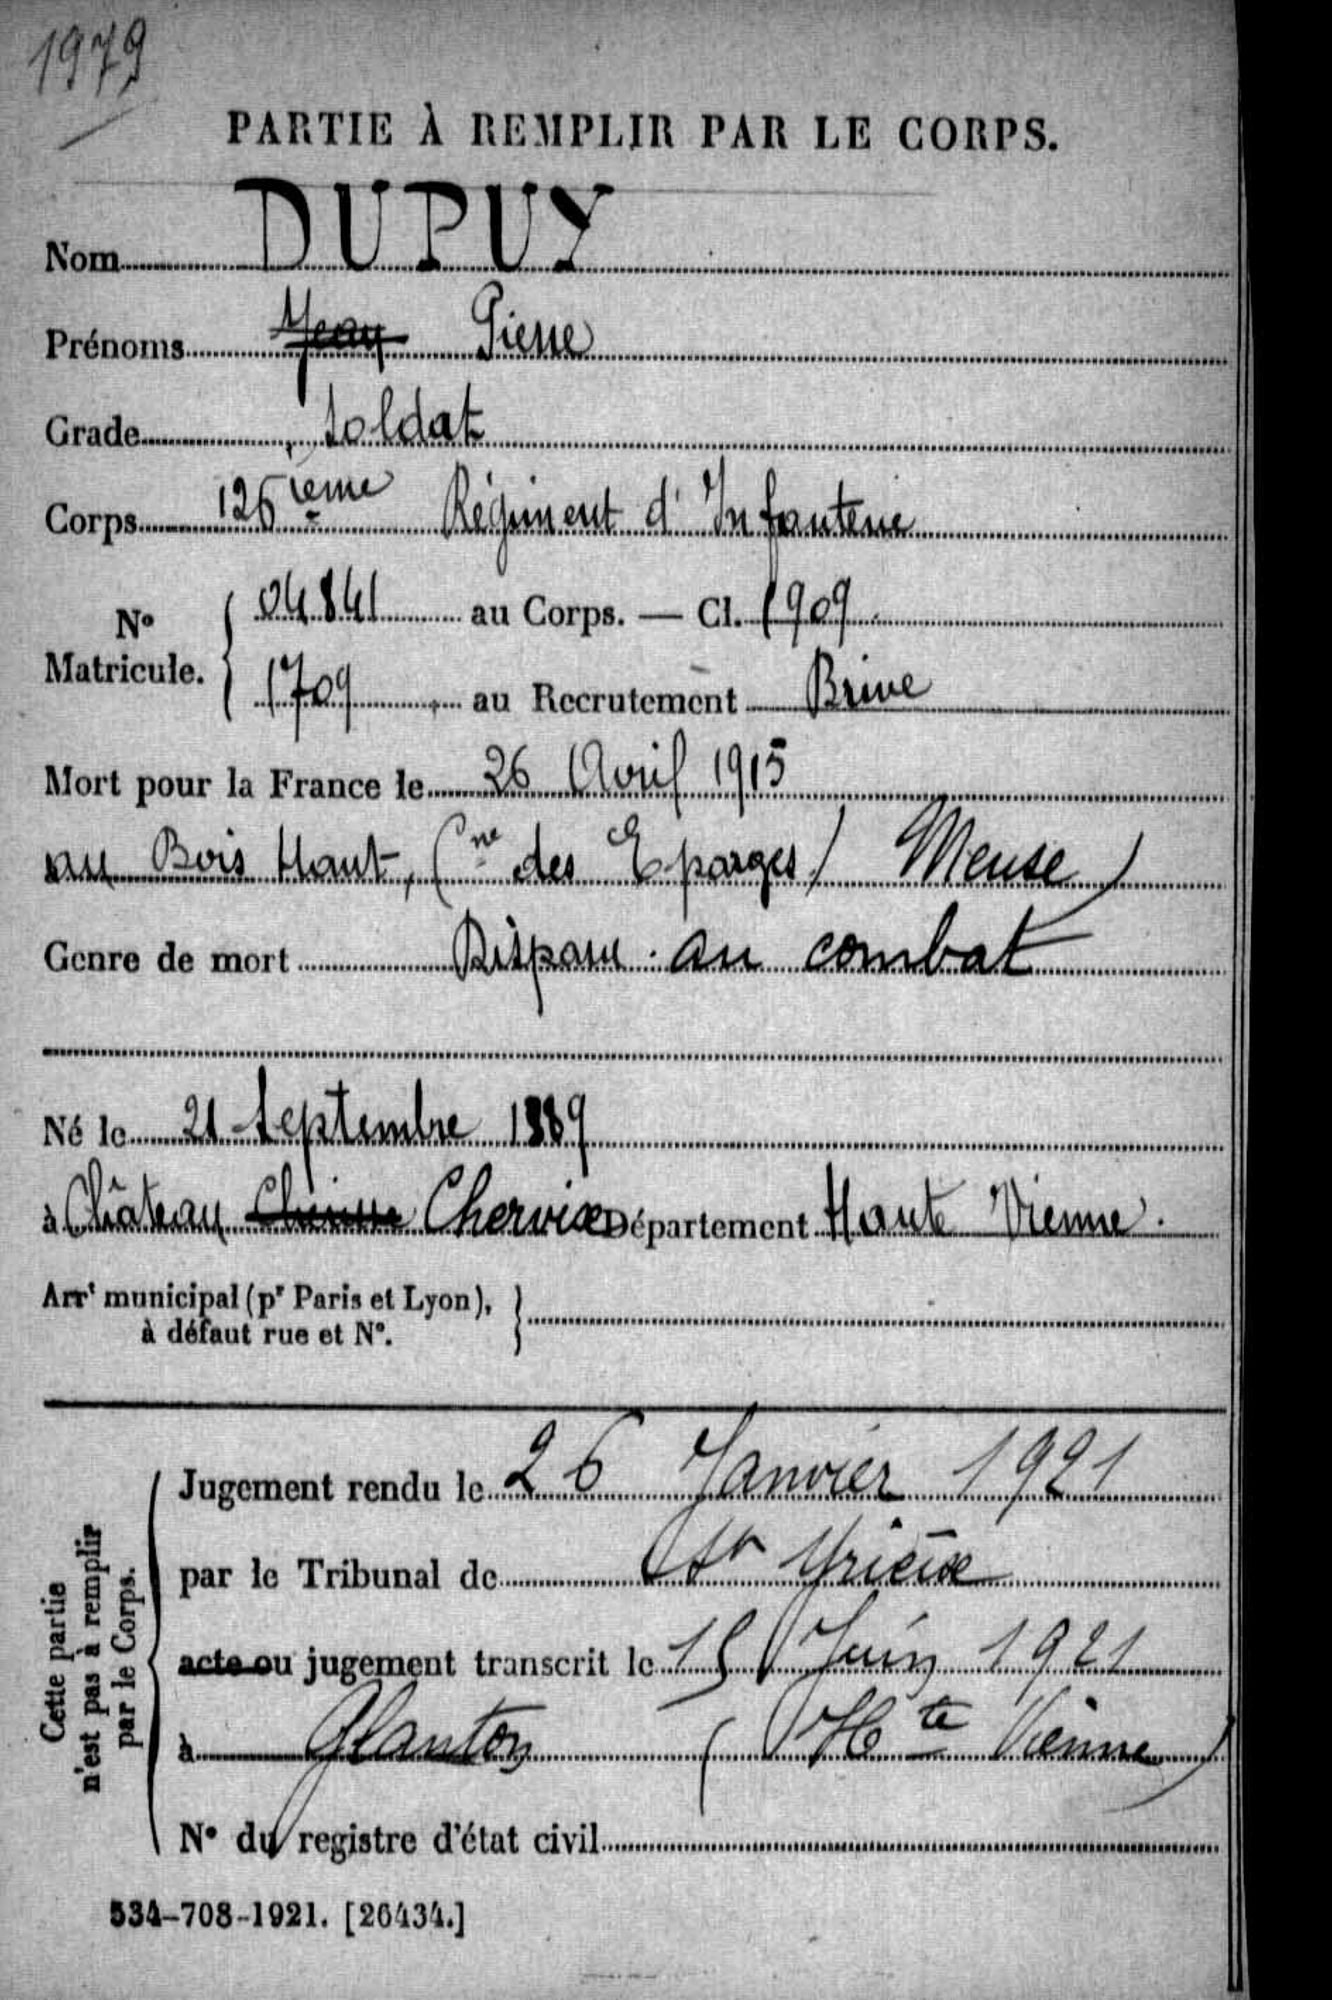 1979
PARTIE À REMPLIR PAR LE CORPS.
Nom DUPUY
Prénoms Jean Pierre
Grade Soldat
Corps 126ième Régiment d'Infanterie
N° Matricule.
04841 au Corps. — Cl. 1909
1709 au Recrutement Brive
Mort pour la France le 26 Avril 1915
au Bois Haut, (Cne des Eparges) Meuse)
Genre de mort Disparu au combat
Né le 21 Septembre 1889
à Château Chervix Département Haute Vienne.
Arrt municipal (pr Paris et Lyon),
à défaut rue et N°.
Cette partie
n'est pas à remplir
par le Corps.
Jugement rendu le 26 Janvier 1921
par le Tribunal de St Yrieix
acte ou jugement transcrit le 15 Juin 1921
à Glanton (Hte Vienne)
N° du registre d'état civil
534-708-1921. [26434.]